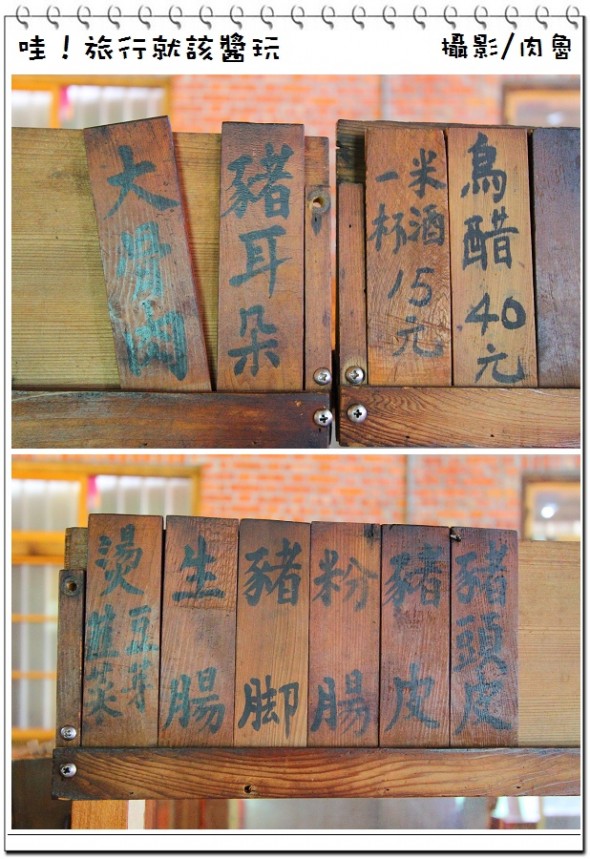 哇！旅行就該醬玩
攝影/肉魯
大骨肉
豬耳朵
米酒
一杯
15元
烏醋40元
燙
豆芽
韮菜
生腸
豬脚
粉腸
豬皮
豬頭皮